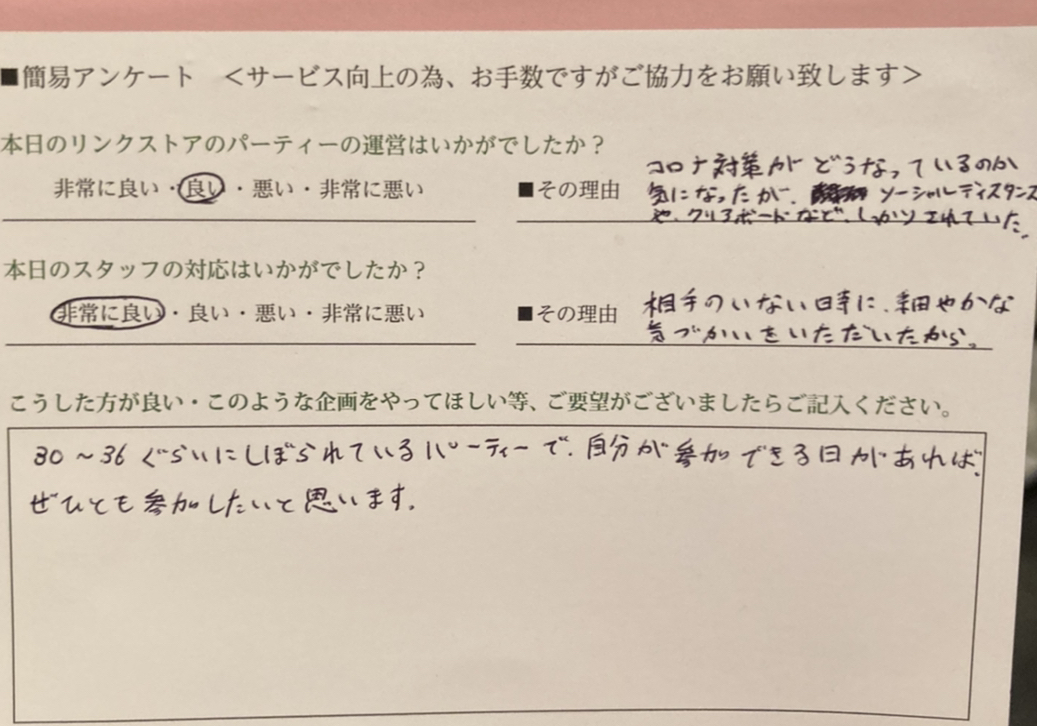 ■簡易アンケート <サービス向上の為、お手数ですがご協力をお願い致します>
本日のリンクストアのパーティーの運営はいかがでしたか?
非常に良い・良い・悪い・非常に悪い
■その理由
コロナ対策がどうなっているのか
気になったが、ソーシャルディスタンス
や、クリアボードなど、しっかりされていた。
本日のスタッフの対応はいかがでしたか?
非常に良い・良い・悪い・非常に悪い
■その理由
相手のいない時に、細やかな
気づかいをいただいたから。
こうした方が良い・このような企画をやってほしい等、ご要望がございましたらご記入ください。
30~36ぐらいにしぼられているパーティーで、自分が参加できる日があれば、
ぜひとも参加したいと思います。